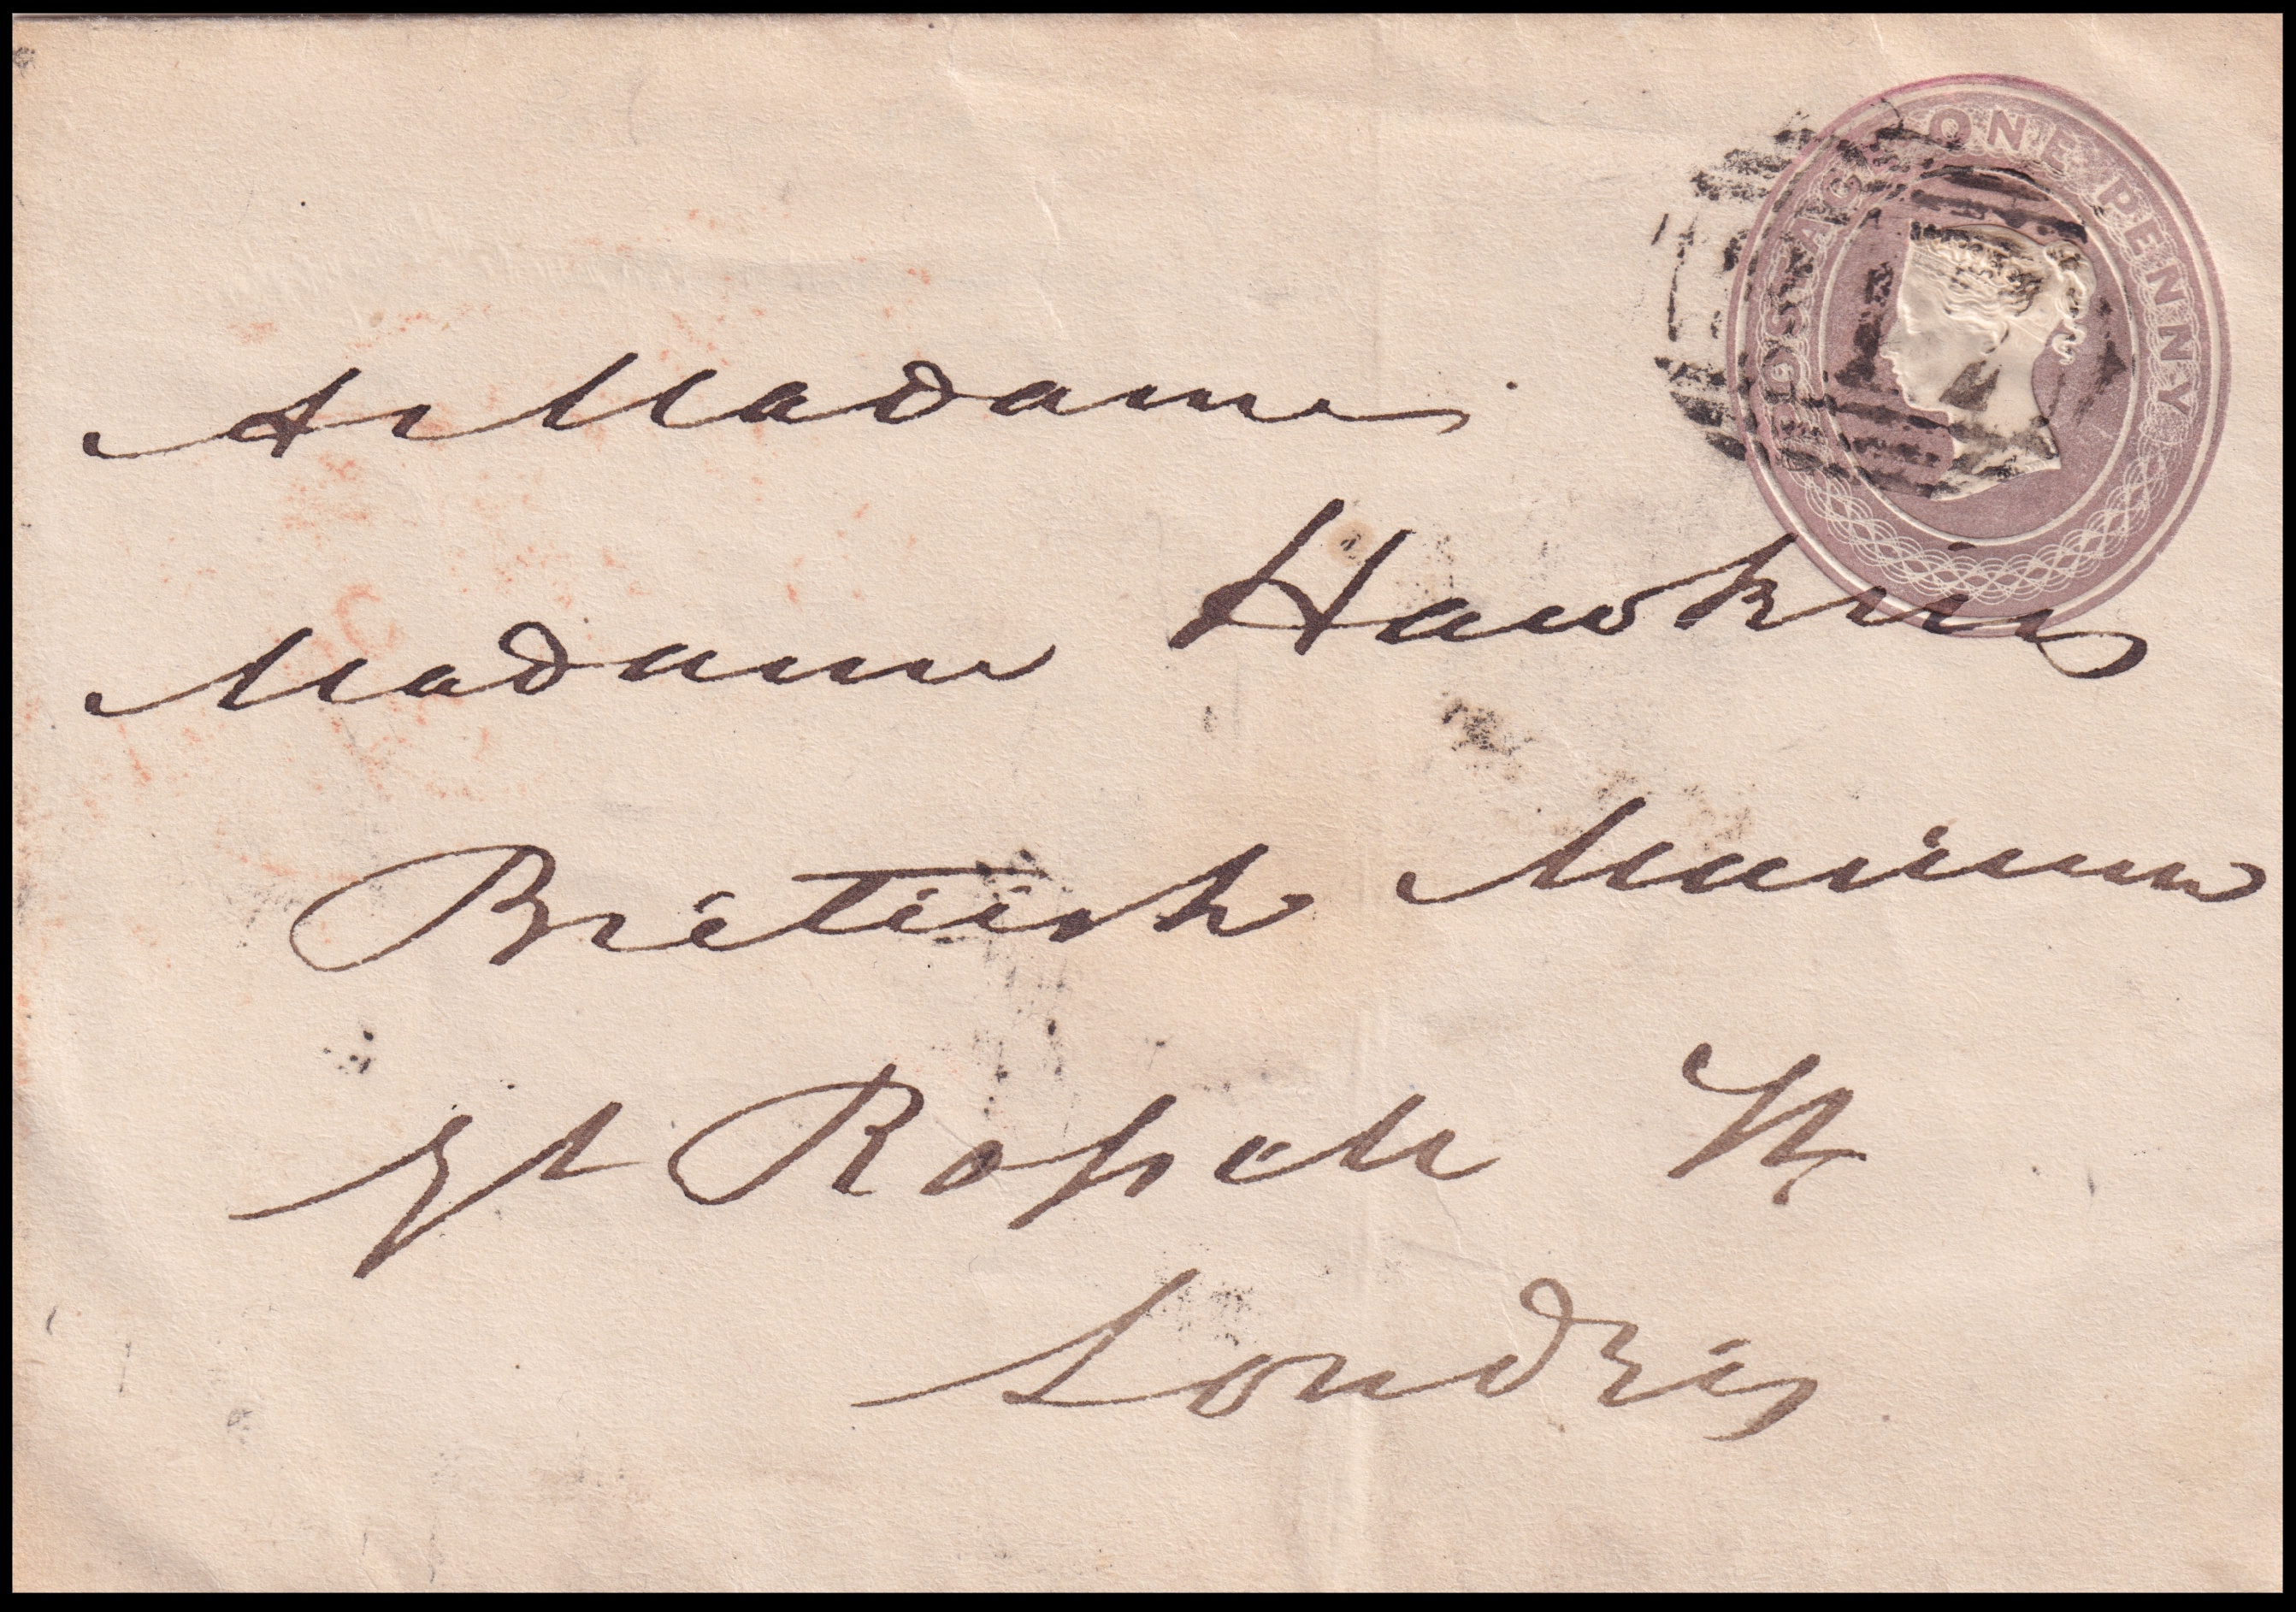 POSTAGE ONE PENNY
A Madame
Madame Hawkins
British Museum
Gt Russell St
Londres